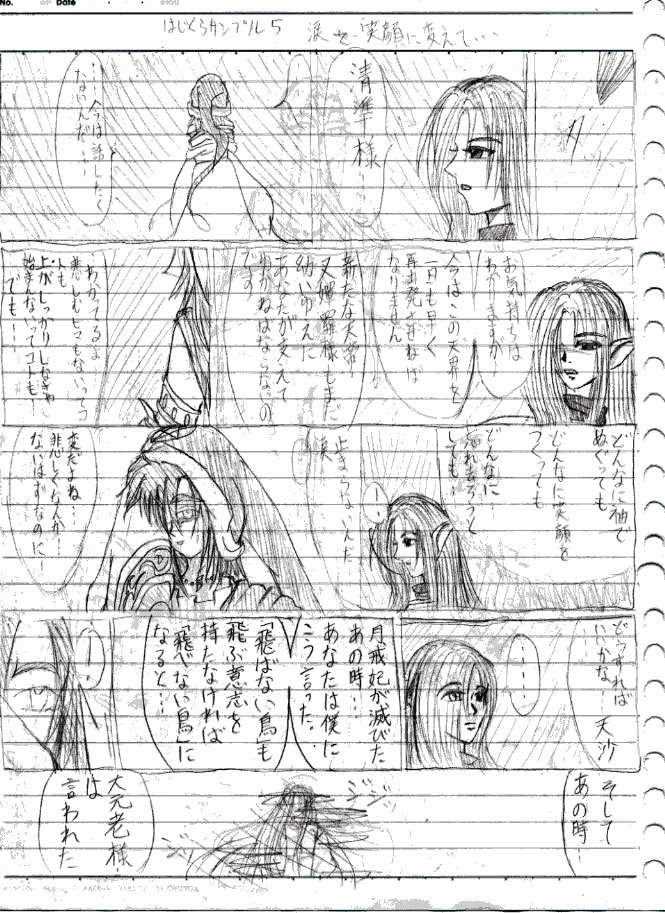 No.
Date
はじくろサンプル5　涙を笑顔に変えて…
清準様……
……今は話したく
ないんだ……
お気持ちは
わかりますが…
今はこの天界を
一日も早く
再出発させねば
なりません
新たな天帝
又娜羅様もまだ
幼いゆえに
あなたが支えて
いかねばならないの
です
わかってるよ
悲しむヒマもないってコ
トも…
上がしっかりしなきゃ
始まんないってコトも…
でも…
どんなに袖で
ぬぐっても
どんなに笑顔を
つくっても
どんなに…
忘れ去ろうと
しても…
止まらないんだ
涙
変だよね…
悲しくなんか…
ないはずなのに…
どうすれば
いいかな…　天沙
……
月戒妃が滅びた
あの時…
あなたは僕に
こう言った。
「飛ばない鳥も
飛ぶ意志を
持たなければ
「飛べない鳥」に
なると…」
…
そして
あの時…
ジジッ
ジジ
大元老様
は
言われた